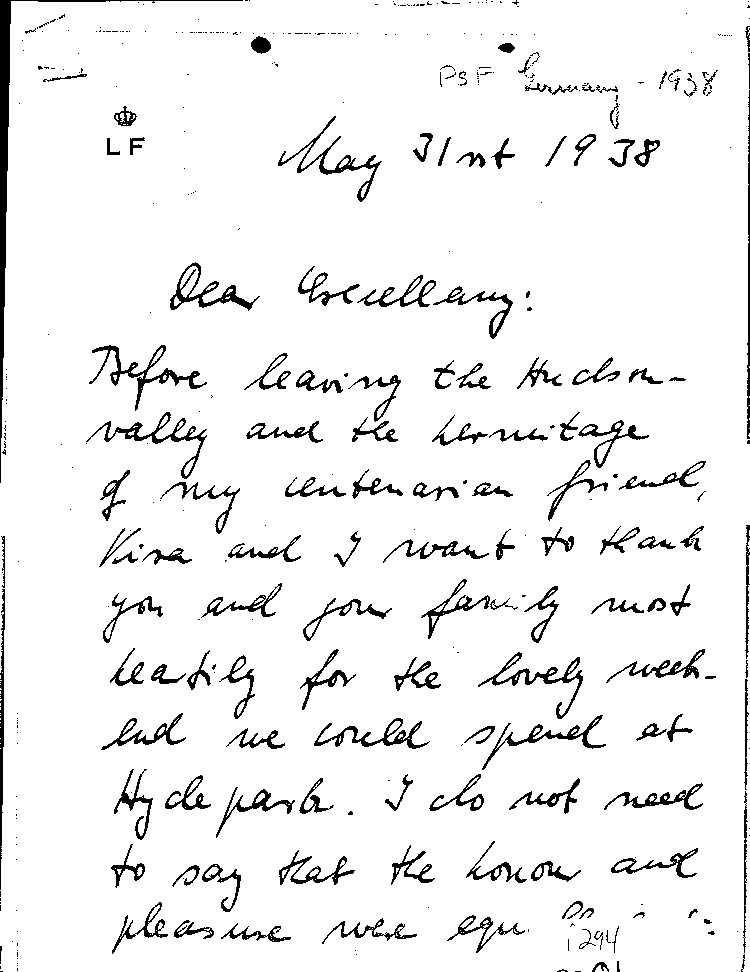 PSF Germany - 1938
LF
May 31st 1938
Dear Excellency:
Before leaving the Hudson-
valley and the hermitage
of my centenarian friend,
Kira and I want to thank
you and your family most
heartily for the lovely week-
end we could spend at
Hyde park. I do not need
to say that the honour and
pleasure were equ
1294